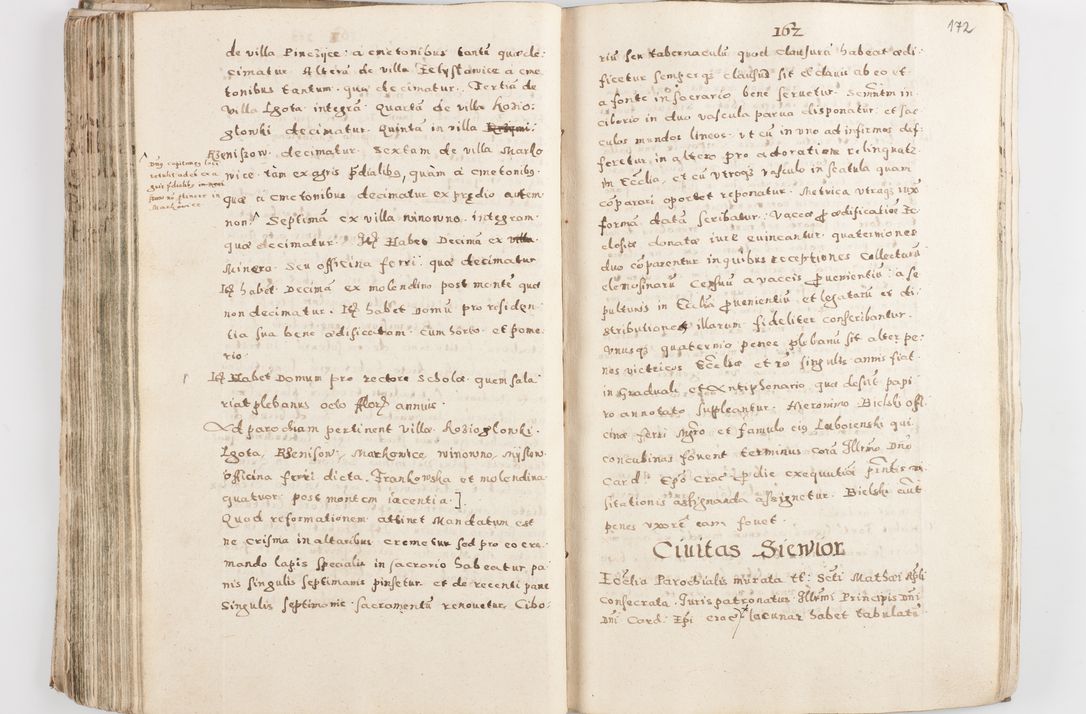 de villa Pinczijce a cmetonibus tantũ quæ de-
cimatur Altera de villa Zelyslawice a cme
tonibus tantum. quæ decimatur. Tertiã de
villa Lgota integrã Quartã de villa Kozio:
glowki decimatur. Quintã in villa
Rzeniszow decimatur Sextam de villa Marko
wice tam ex agris prædialibs, quam a cmetonibs
quæ a cmetonibus decimatur ex prędio autem
non Septimã ex villa Winowno integram
quæ decimatur. Itẽ Habet Decimã ex villa
Minera seu officina ferri quæ decimatur
Itẽ habet Decimã ex molendino post montẽ quæ
non decimatur. Itẽ habet Domũ pro residen
tia sua bene ædificatam cum horto et pome
rio
Itẽ Habet Domum pro rectore scholæ quem sala
riat plebanus octo florẽ annuis
Ad parochiam pertinent Villæ Kozioglowki.
Lgota, Rzeniszow, Markowice winowno, Myszow
officina ferri dicta Frankowska et molendina
quatuor post montem iacentia]
Quod reformationem attinet Mandatum est
ne crisma in altaribus cremetur sed pro eo cre
mando lapis specialis in sacrario habeatur pa
nis singulis septimanis pinsetur et de recenti pane
Singulis septimanis sacramentũ renouetur. Cibo:
Dnũs capitaneus loci
Markowice
162
172
riũ seu tabernaculũ quod clausurã habeat ædi
ficetur semperqs clausũ sit et clauis ab eo et
a fonte in sacrario bene seruetur. Sacramtm in
ciborio in duo vascula parua disponatur et sac
culos mundos lineos vt cũ in vno ad infirmos def
feretur, in altero pro adoratione relinquatr.
in Ecclia, et cũ vtroqs vasculo in scatula quam
cõparari oportet reponatur Metrica vtraqs iuxtã
formã datã scribatur Vaccæ p ædificatione Ec
clesiæ donatæ iure euincantur quaterniones
duo cõparentur in quibus receptiones Collectarũ
elemosinarũ Censuũ a vaccis prouenientiũ a se
pulturis in Ecclia prouenientiũ et legatarũ et di
stributiones illarum fideliter conscribantur.
vnusqs quaternio penes plebanũ sit alter pe
nes victricos Eccliæ et rõ singulis annis fiat
in Graduali et Antiphonario quæ desũt papi
ro annotato suppleantur. Hieronimo Bielski offi
cinæ ferri Mgro et famulo eis Luboienski qui
concubinas fouent terminus corã Illrmo Dno
Card Epo Crac p die exequutiæ prñtis vi
sitationis assignanda assignetur. Bielski
penes vxorẽ eam fouet
Ciuitas Siewior
Ecclia Parochialis murata tt: Scti Mathæi Apli
consecrata. Iuris patronatus Illrmi Principis Dni
Dni Card. Epi Crac lacunar habet tabulatũ